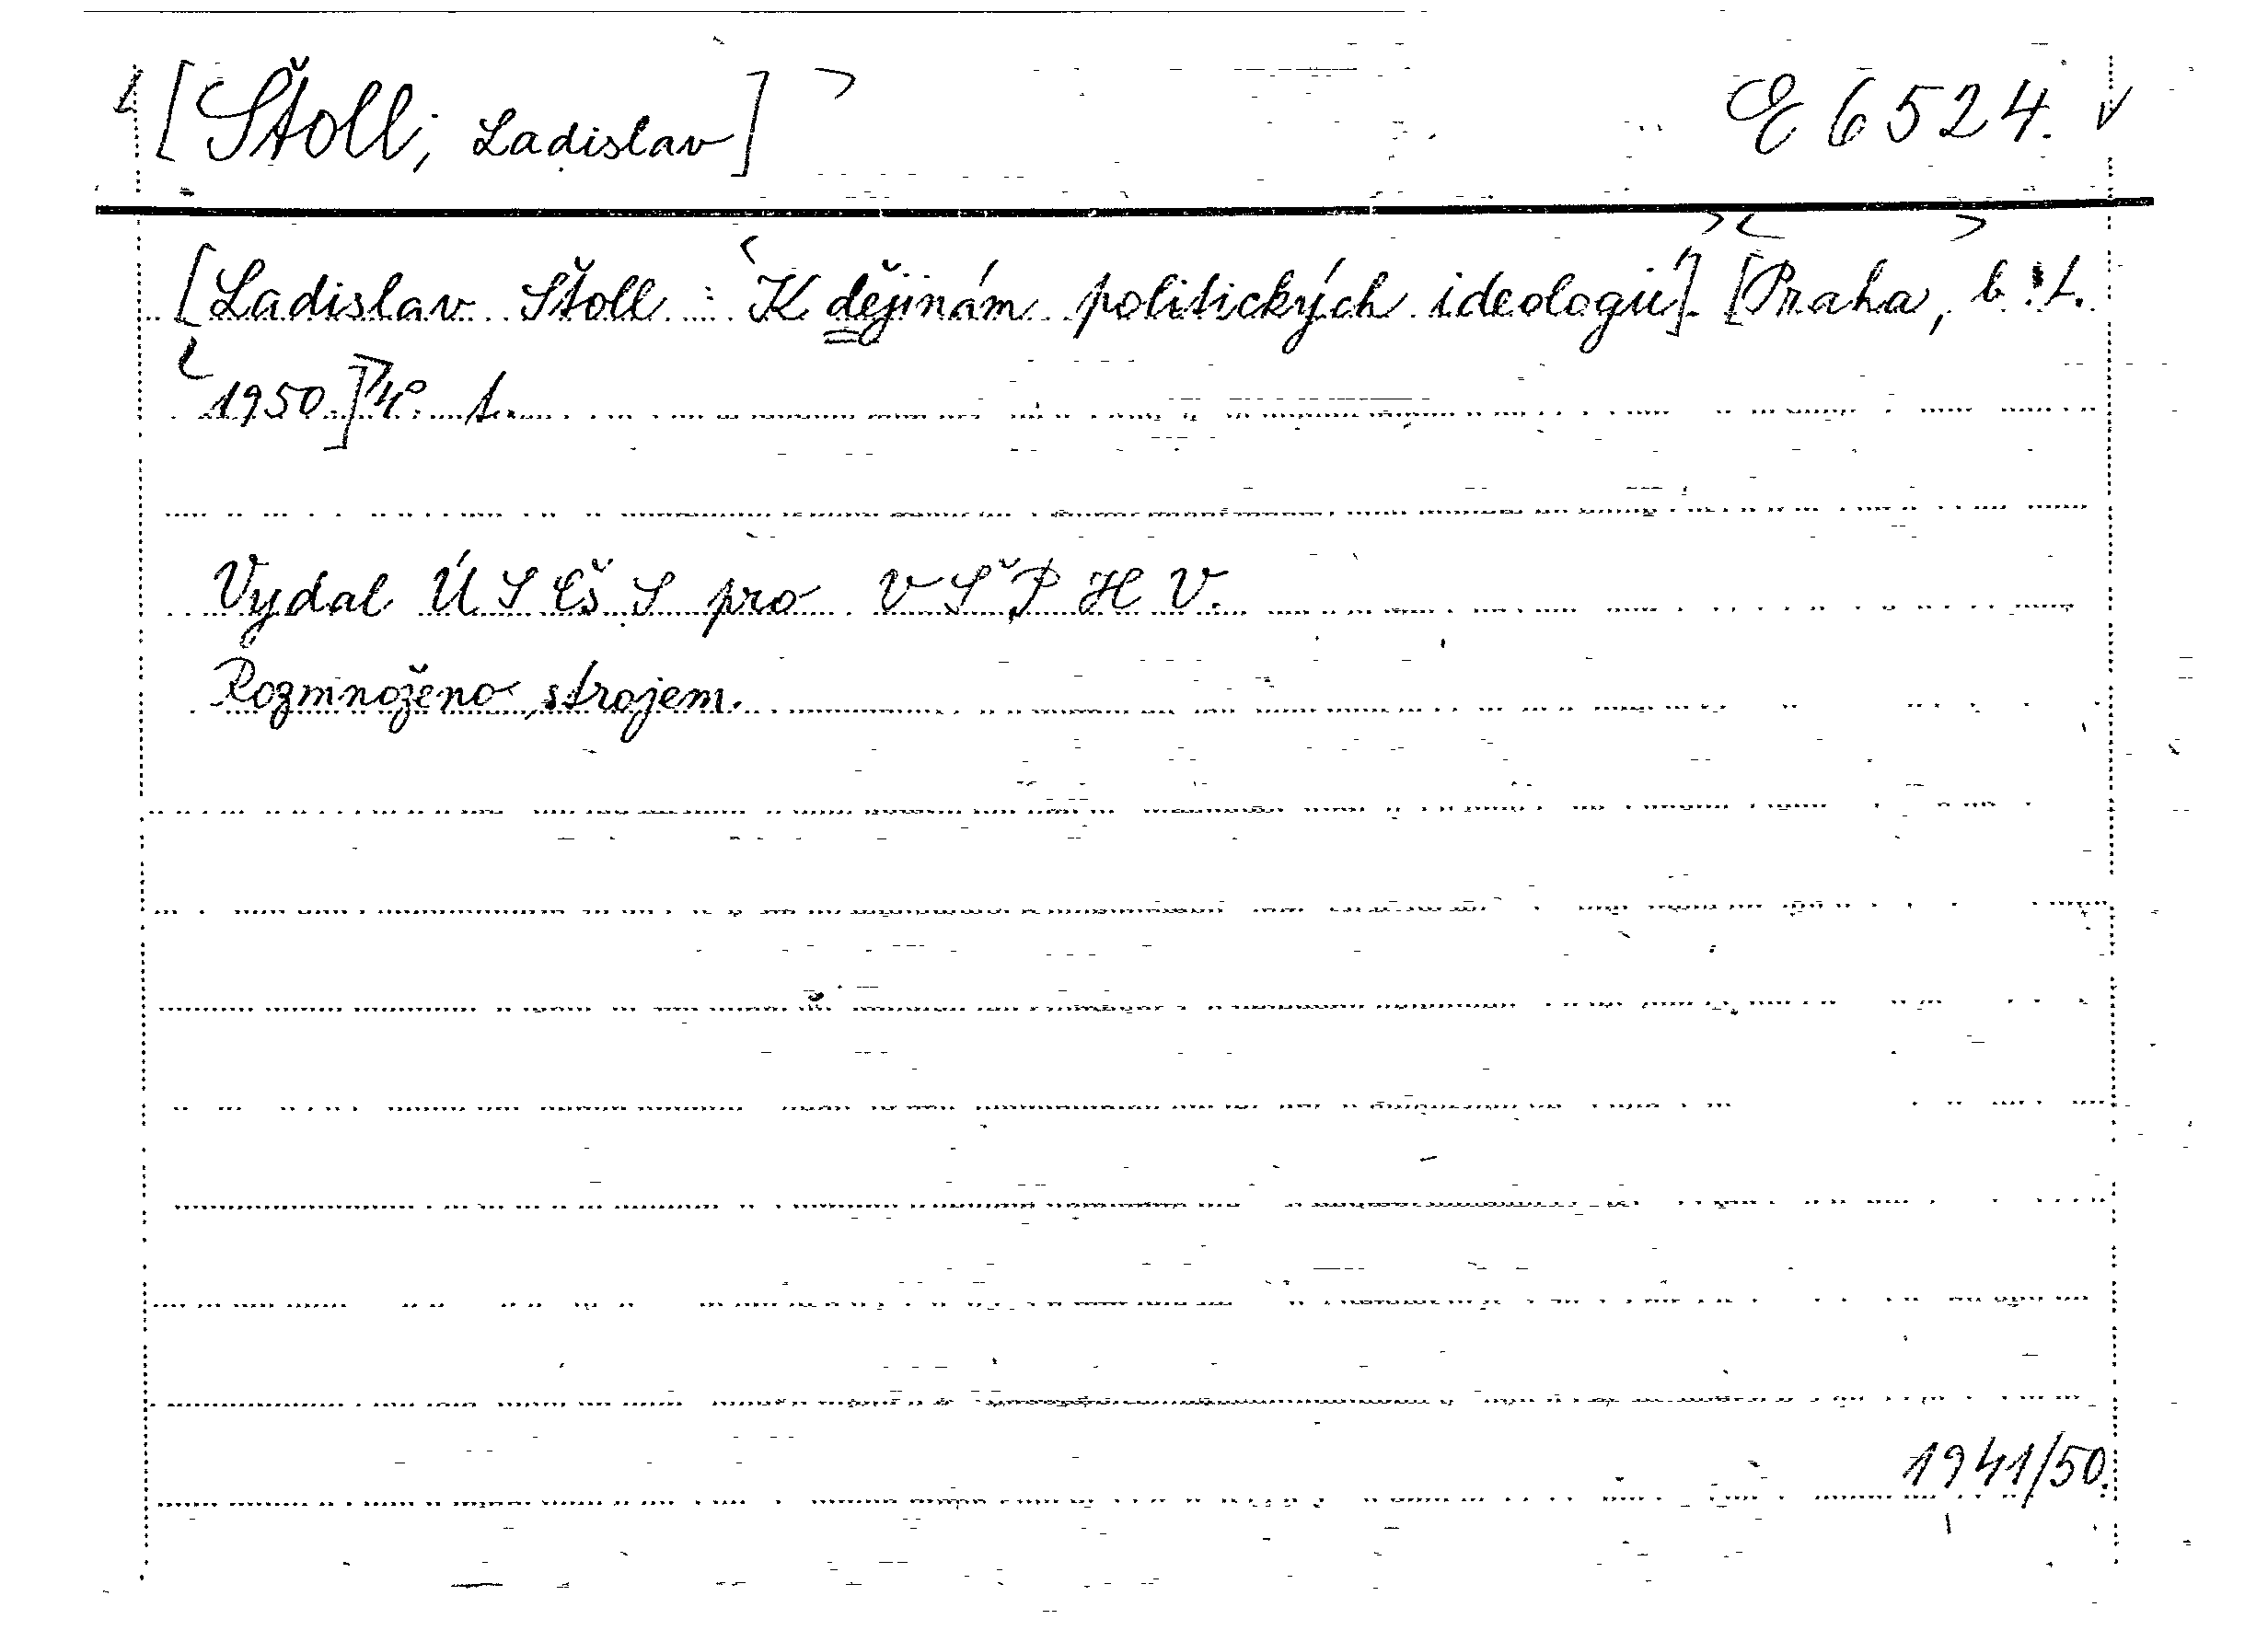 [Štoll, Ladislav] E 6524.
[Ladislav Štoll: K dějinám politických ideologií]. [Praha, b. t.
1950.] 4°. 1.
Vydal Ú S Čs S pro V Š P H V.
Rozmnoženo strojem.
1941/50.